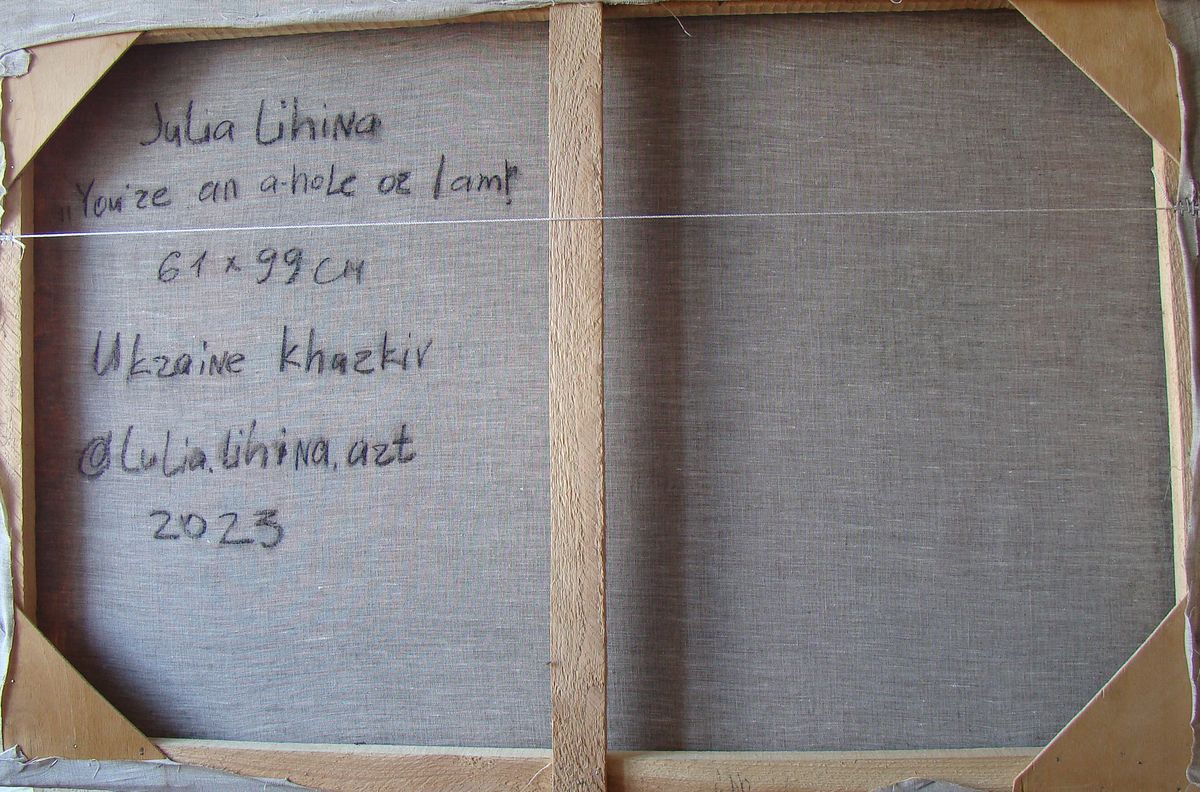 Julia Lihina
"You're an a-hole or I am?
61 x 99 см
Ukraine Kharkiv
@lulia.lihina.art
2023